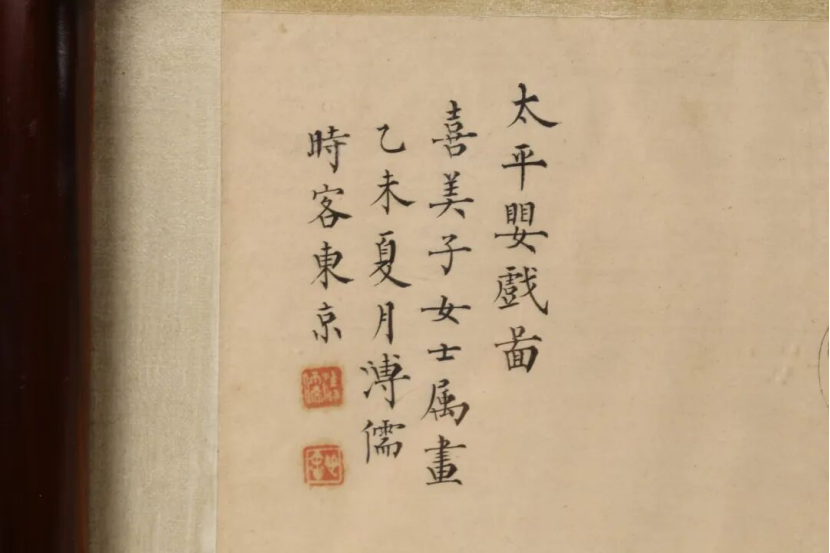 太平嬰戲啚
喜美子女士属畫
乙未夏月溥儒
時客東京